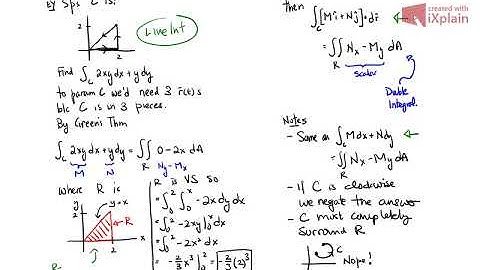 Ey Sps C is:
2
2
Line Int
Find ∫_C 2xy dx + y dy
to param C we'd need 3 r(t)s
b/c C is in 3 pieces.
By Green's Thm
∫_C 2xy dx + y dy = ∬_R 0 - 2x dA
M N N_x - M_y
where R is
y
2
y=x
R
x
2
R is VS so
= ∫_0^2 ∫_0^x -2x dy dx
= ∫_0^2 -2xy |_0^x dx
= ∫_0^2 -2x² dx
= -2/3 x³ |_0^2 = -2/3 (2)³
then ∫_C [Mî + Nĵ]·dr
= ∬_R N_x - M_y dA
Scalar
Double
Integral.
Notes
- Same as ∫_C M dx + N dy
= ∬_R N_x - M_y dA
- If C is clockwise
we negate the answer
- C must completely
Surround R
C
Nope!
created with
iXplain